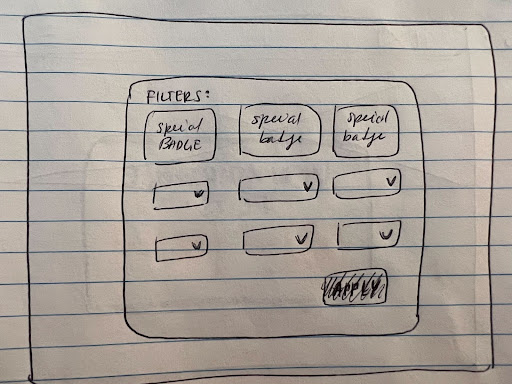 FILTERS:
special
BADGE
special
badge
special
badge
APPLY